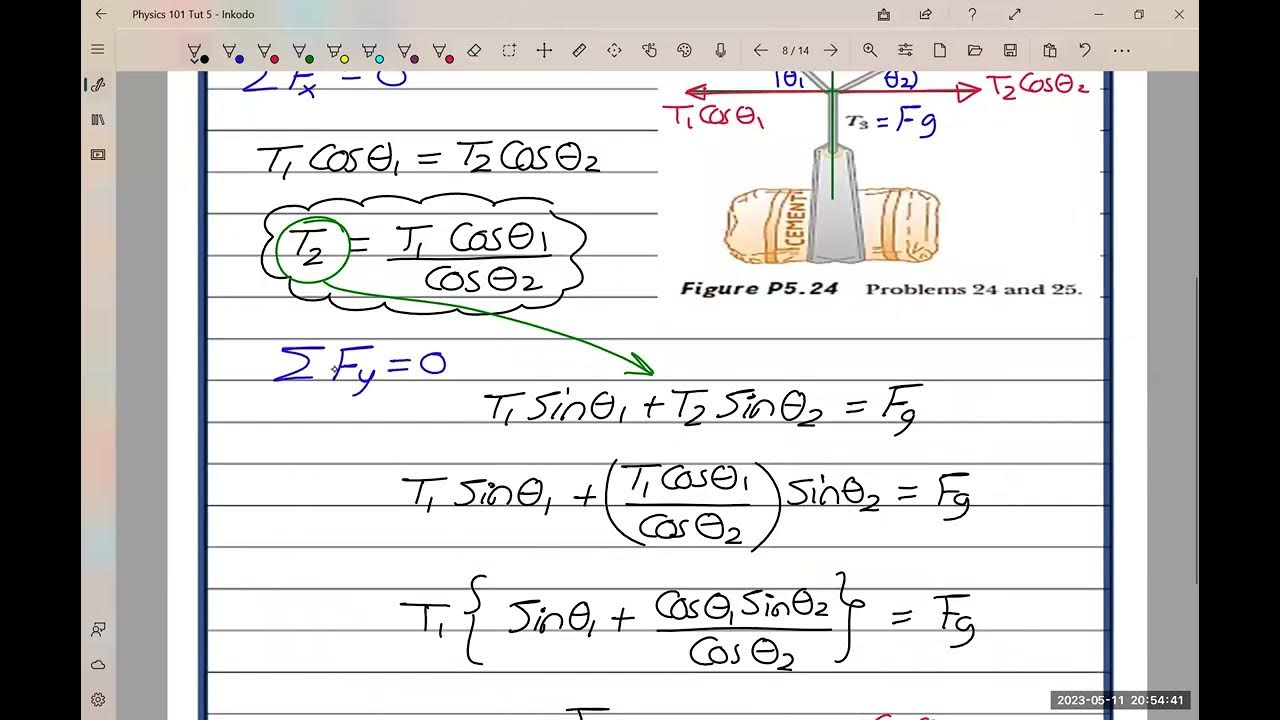 Physics 101 Tut 5 - Inkodo
8 / 14
ΣFx = 0
(θ1 θ2)
T1 Cosθ1
T2 Cosθ2
T3 = Fg
T1 Cosθ1 = T2 Cosθ2
CEMENT
T2 = T1 Cosθ1 / Cosθ2
Figure P5.24 Problems 24 and 25.
ΣFy = 0
T1 Sinθ1 + T2 Sinθ2 = Fg
T1 Sinθ1 + (T1 Cosθ1 / Cosθ2) Sinθ2 = Fg
T1 { Sinθ1 + Cosθ1 Sinθ2 / Cosθ2 } = Fg
2023-05-11 20:54:41